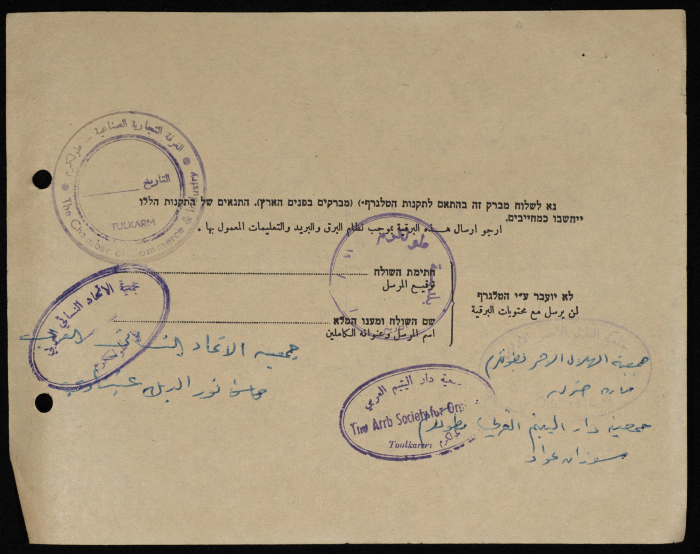 الغرفة التجارية الصناعية - طولكرم
التاريخ
TULKARM
The Chamber of Commerce & Industry
נא לשלוח מברק זה בהתאם לתקנות הטלגרף (מברקים בפנים הארץ). התנאים של התקנות הללו
ייחשבו כמחייבים.
ارجو ارسال هذه البرقية بموجب نظام البرق والبريد والتعليمات المعمول بها .
طولكرم
חתימת השולח
توقيع المرسل
לא יועבר ע״י הטלגרף
لن يرسل مع محتويات البرقية
שם השולח ומענו המלא
اسم المرسل وعنوانه الكاملين
جمعية الاتحاد النسائي العربي
جمعية الاتحاد النسائي العربي
جمعية الهلال الاحمر بطولكرم
جمعية دار اليتيم العربي
The Arrb Society for Orp
Toulkarem
طولكرم
جمعية دار اليتيم العربي بطولكرم
سوزان عواد